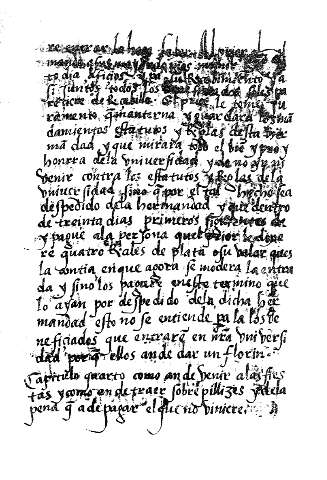 si juntos todos los
reticre de Rescebille. El prior le tome ju
ramento q̄ manterna y guardara los mā
damientos estatutos y Reglas desta her
mādad y que mirara todo el bien y pro y
honrra dela vniuersidad y de no yr ni
venir contra los estatutos y Reglas dela
vniuersidad sino q̄ por el tal hecho sea
despedido dela hermandad y que dentro
de treinta dias primeros siguientes de
y pague ala persona quel prior le dixe
re quatro Reales de plata o su valor ques
la contia en que agora se modera la entra
da y si no los pagare en este termino que
lo ayan por despedido dela dicha her
mandad esto no se entiende pa la los be
neficiados que entrarē en nrā vniuersi
dad porq̄ ellos an de dar un florin
Capitulo quarto como an de venir alas fies
tas y como an de traer sobrepillizes y dela
pena q̄ a de pagar el que no viniere.